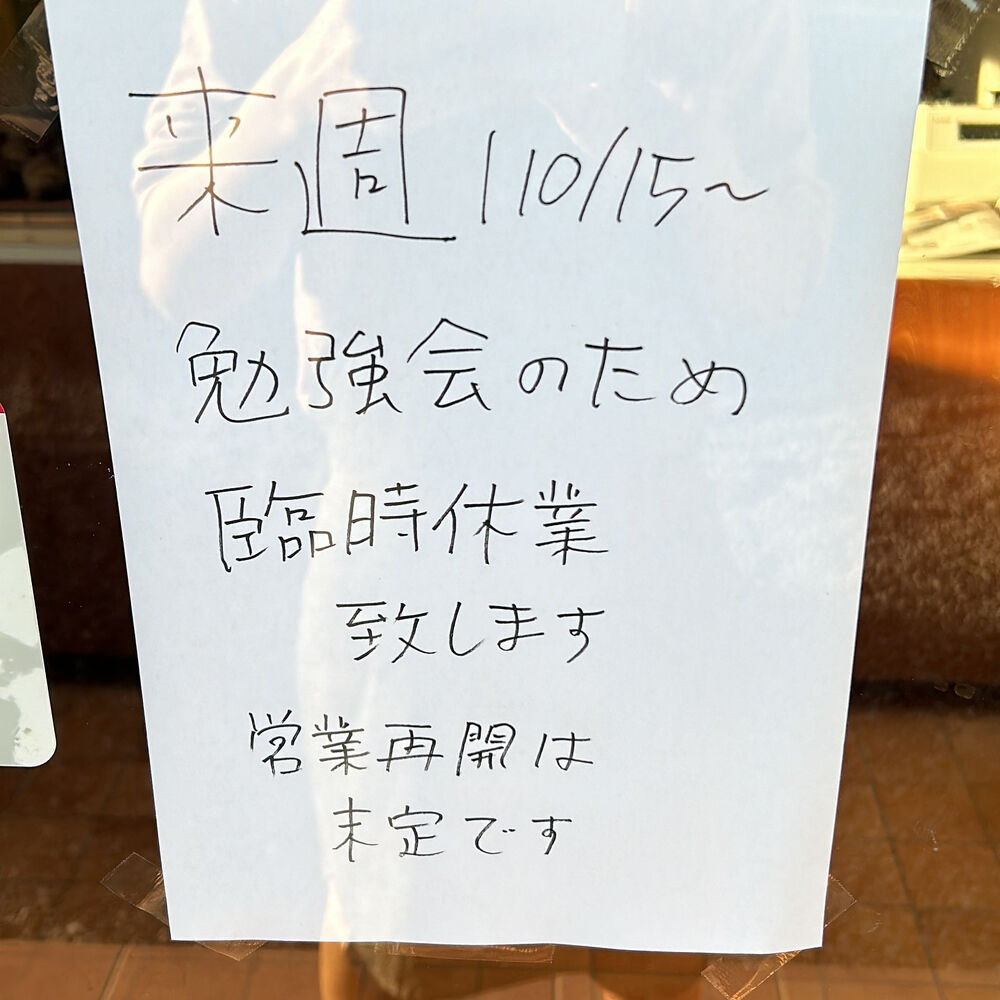 来週 10/15〜
勉強会のため
臨時休業
致します
営業再開は
未定です